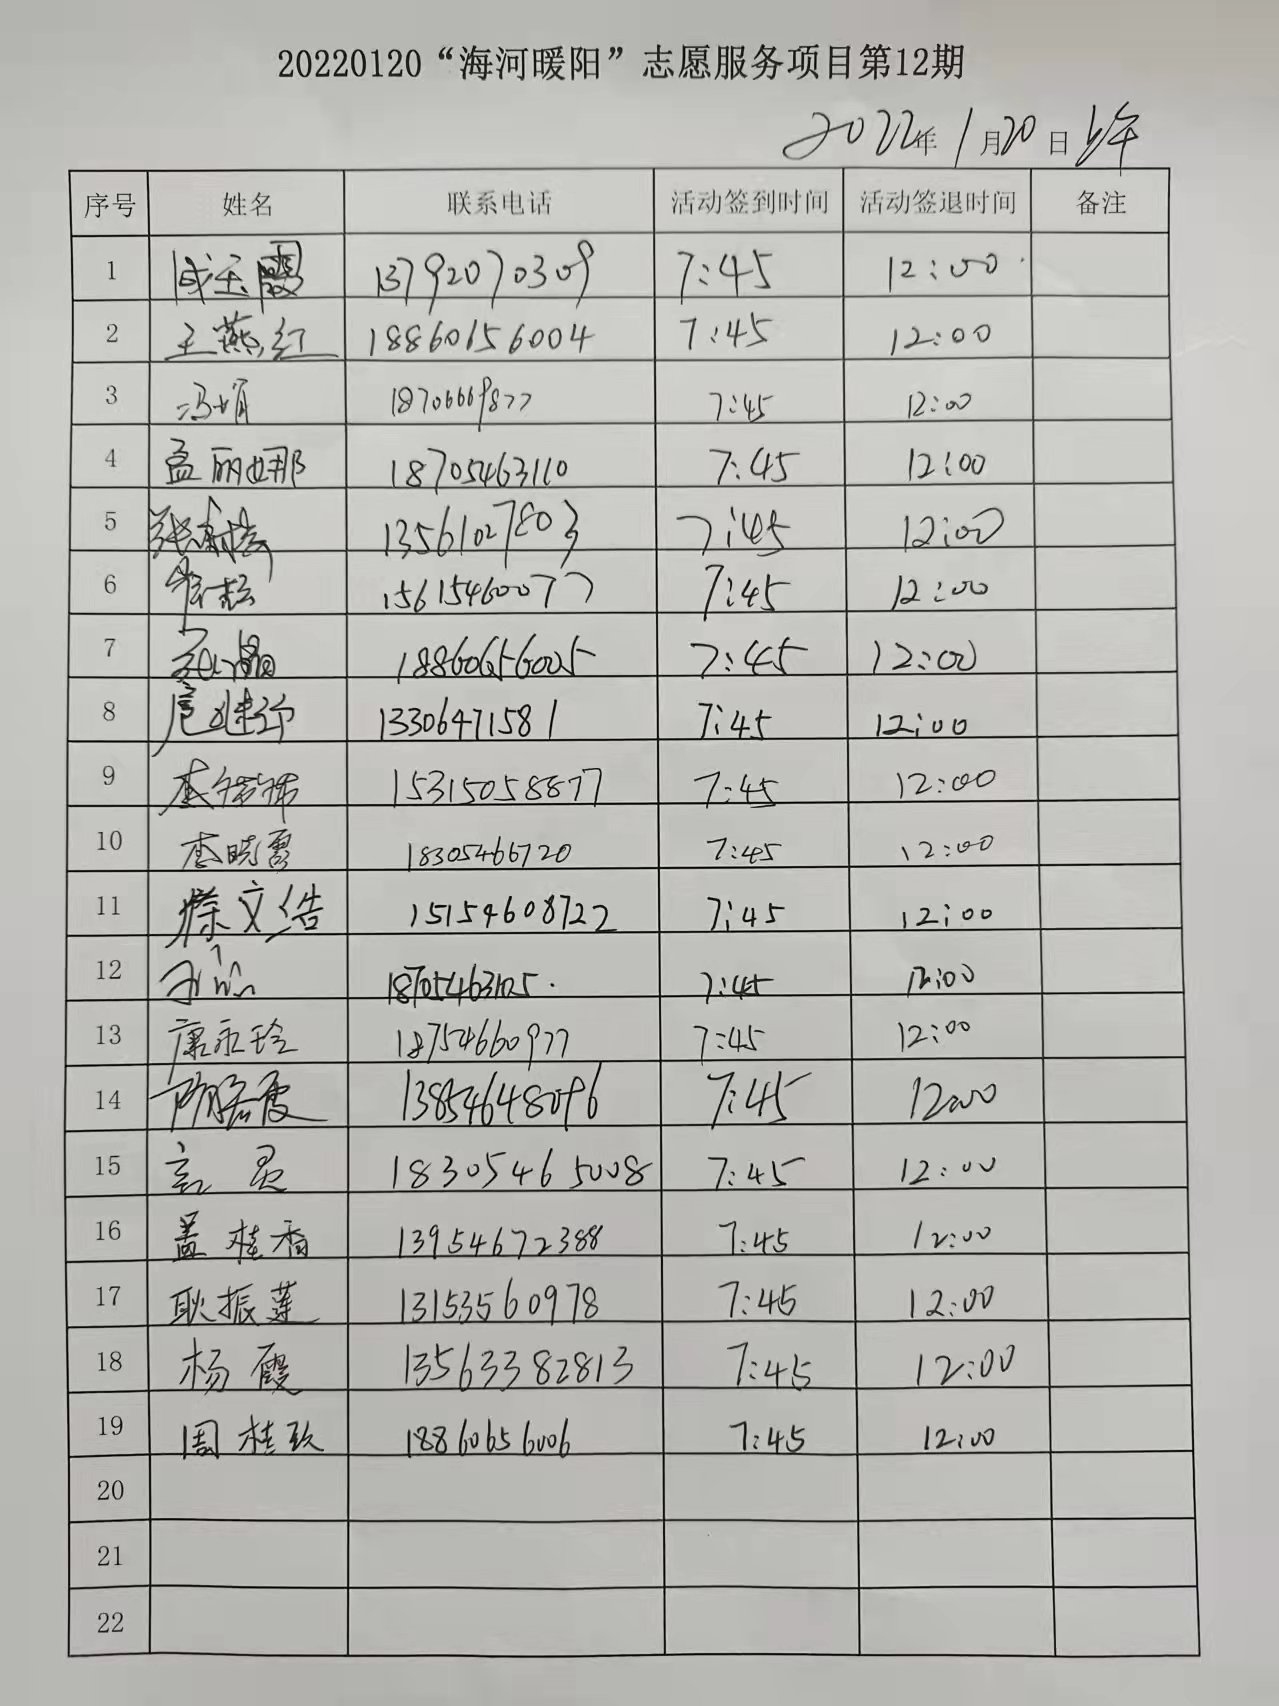 20220120“海河暖阳”志愿服务项目第12期
2022年1月20日上午
序号 姓名 联系电话 活动签到时间 活动签退时间 备注
1 成玉霞 13792070309 7:45 12:00
2 王燕红 18860156004 7:45 12:00
3 冯娟 18706669877 7:45 12:00
4 孟丽娜 18705463110 7:45 12:00
5 13561027803 7:45 12:00
6 15615460077 7:45 12:00
7 18860656005 7:45 12:00
8 13306471581 7:45 12:00
9 李 15315058877 7:45 12:00
10 李晓霞 18305466720 7:45 12:00
11 文浩 15154608722 7:45 12:00
12 18705463105 7:45 12:00
13 康永玲 18754660977 7:45 12:00
14 13854648096 7:45 12:00
15 灵 18305465008 7:45 12:00
16 盖桂香 13954672388 7:45 12:00
17 耿振莲 13153560978 7:45 12:00
18 杨霞 13563382813 7:45 12:00
19 周桂玖 18860656006 7:45 12:00
20
21
22